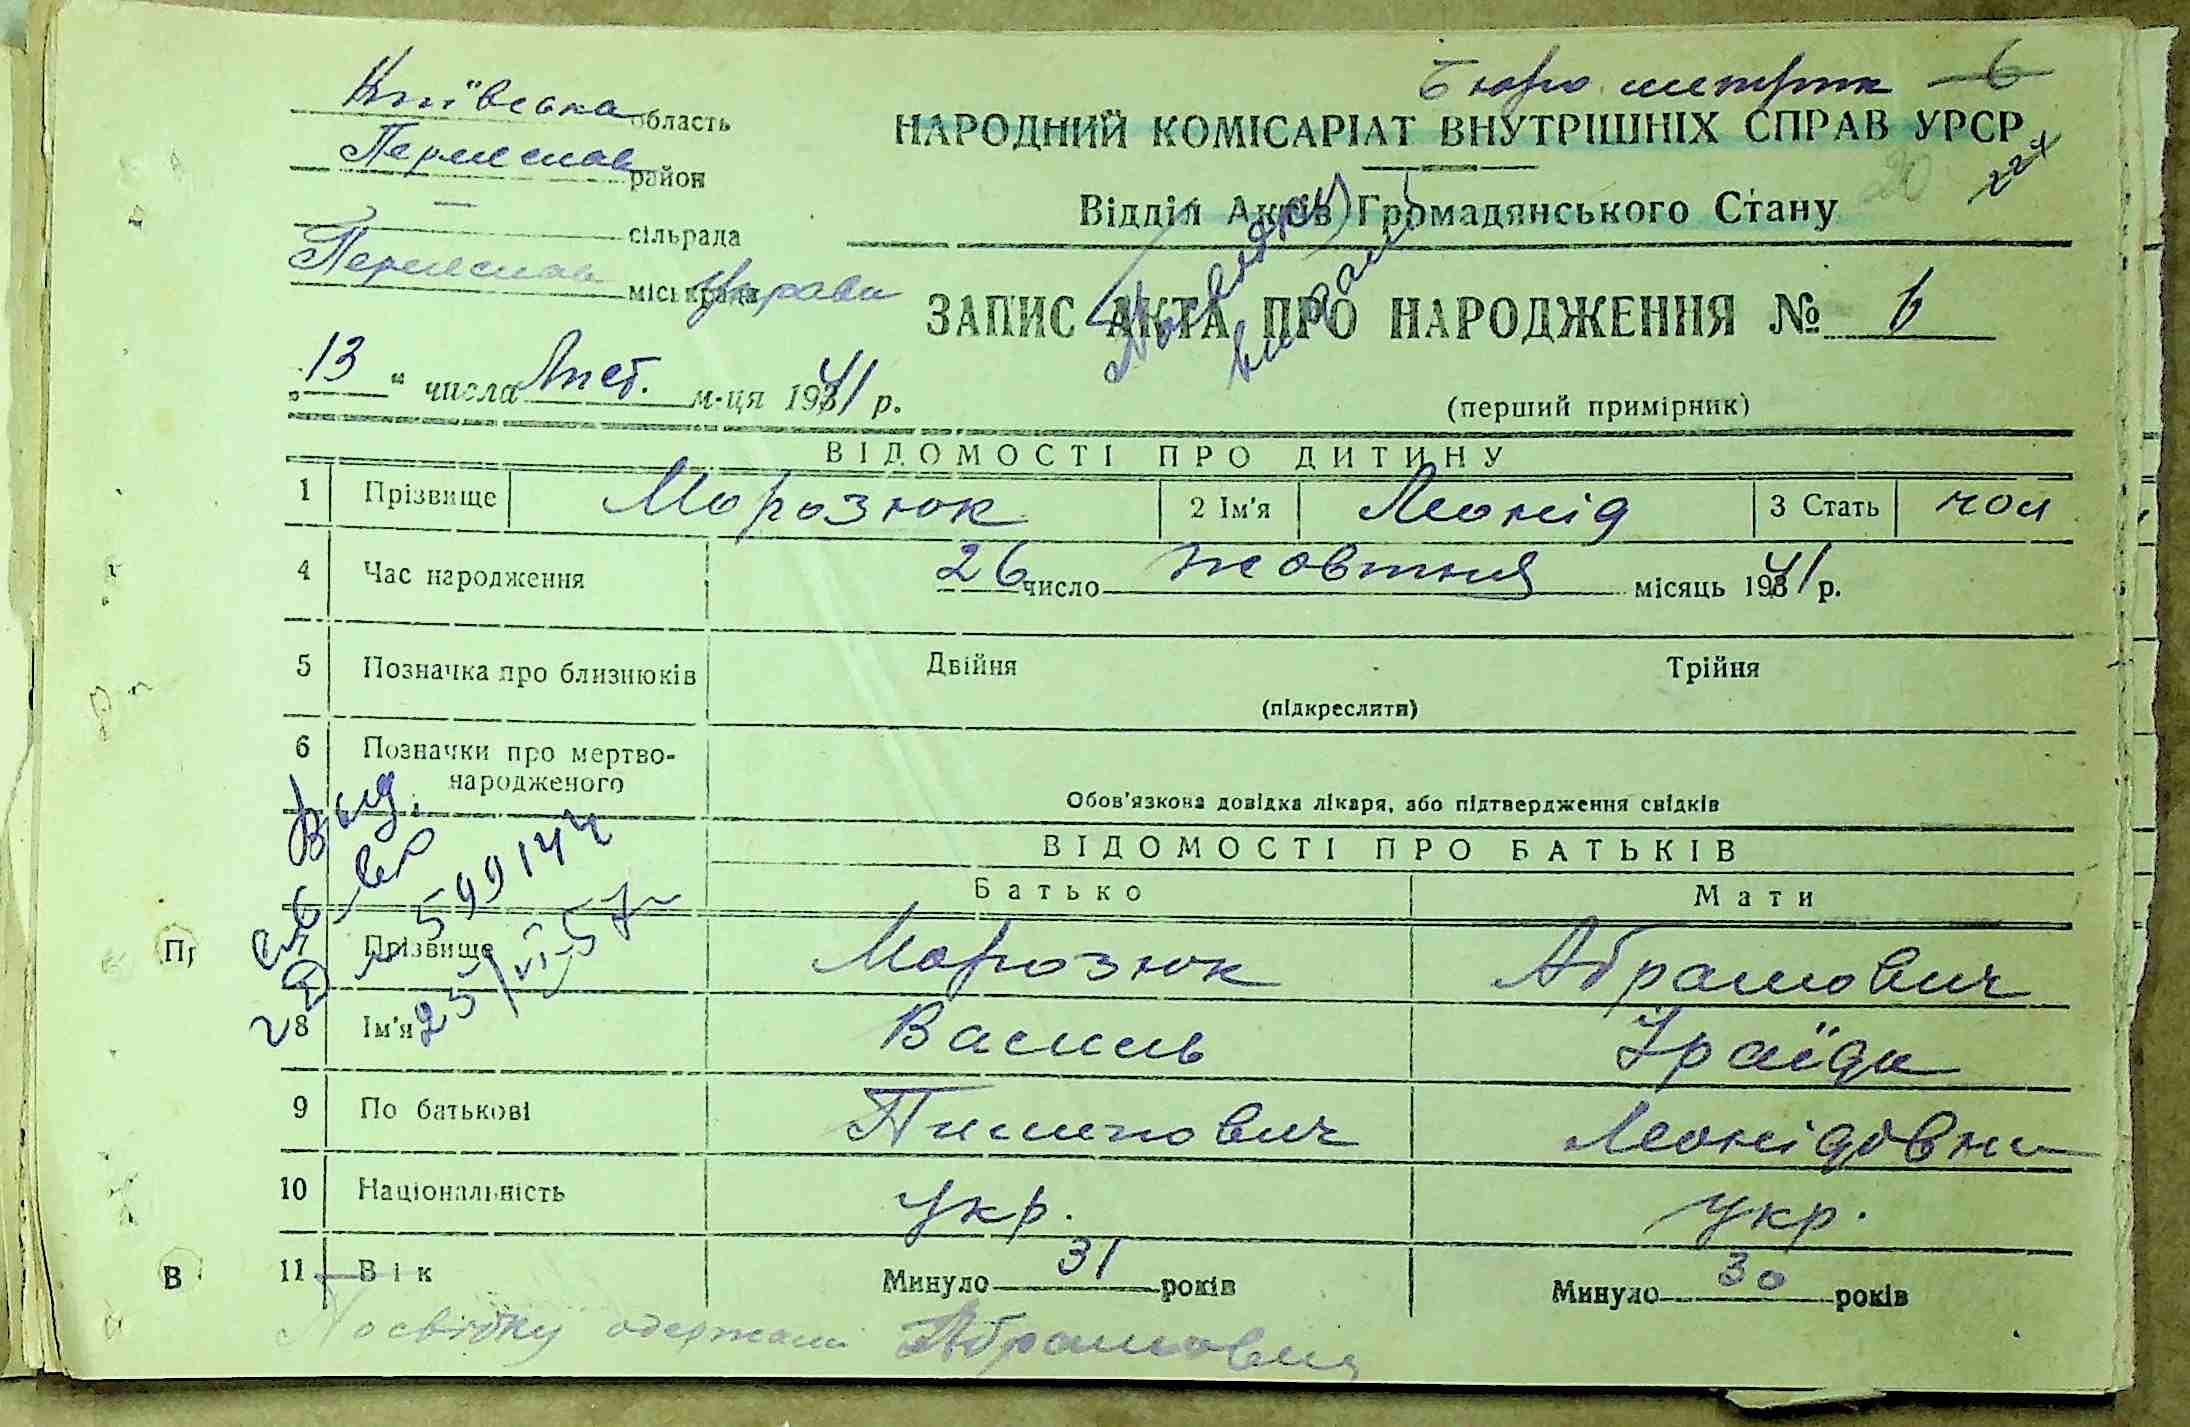 Київська область
Бюро метрик 6
НАРОДНИЙ КОМІСАРІАТ ВНУТРІШНІХ СПРАВ УРСР
Переяслав район
20
224
Відділ Актів Громадянського Стану
сільрада
Переяслав міськрада Управа
ЗАПИС АКТА ПРО НАРОДЖЕННЯ № 6
„13“ числа Лист. м-ця 1941 р.
(перший примірник)
ВІДОМОСТІ ПРО ДИТИНУ
1 Прізвище Морозюк 2 Ім'я Леонід 3 Стать чол
4 Час народження 26 число жовтня місяць 1941 р.
5 Позначка про близнюків Двійня Трійня
(підкреслити)
6 Позначки про мертво-
народженого
Обов'язкова довідка лікаря, або підтвердження свідків
Выд.
599144
25/VI-57
ВІДОМОСТІ ПРО БАТЬКІВ
Батько Мати
Прізвище Морозюк Абрамович
8 Ім'я Василь Іраїда
9 По батькові Пилипович Леонідовна
10 Національність укр. укр.
11 Вік Минуло 31 років Минуло 30 років
Посвідку одержали Абрамович